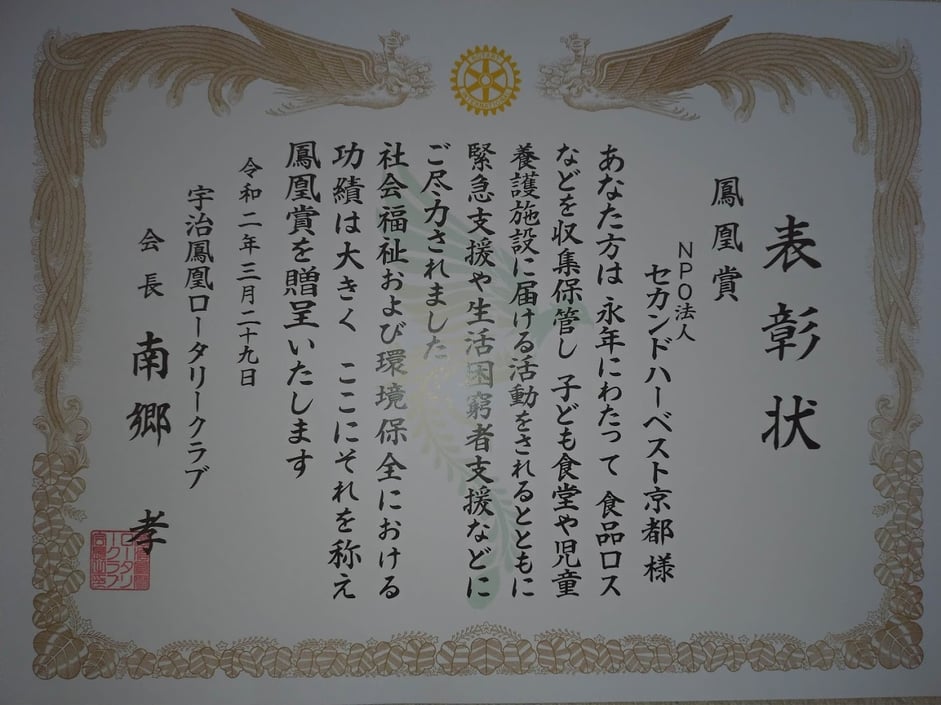 表彰状
鳳凰賞
NPO法人
セカンドハーベスト京都 様
あなた方は 永年にわたって 食品ロス
などを収集保管し 子ども食堂や児童
養護施設に届ける活動をされるとともに
緊急支援や生活困窮者支援などに
ご尽力されました
社会福祉および環境保全における
功績は大きく ここにそれを称え
鳳凰賞を贈呈いたします
令和二年三月二十九日
宇治鳳凰ロータリークラブ
会長 南郷 孝
ROTARY
INTERNATIONAL